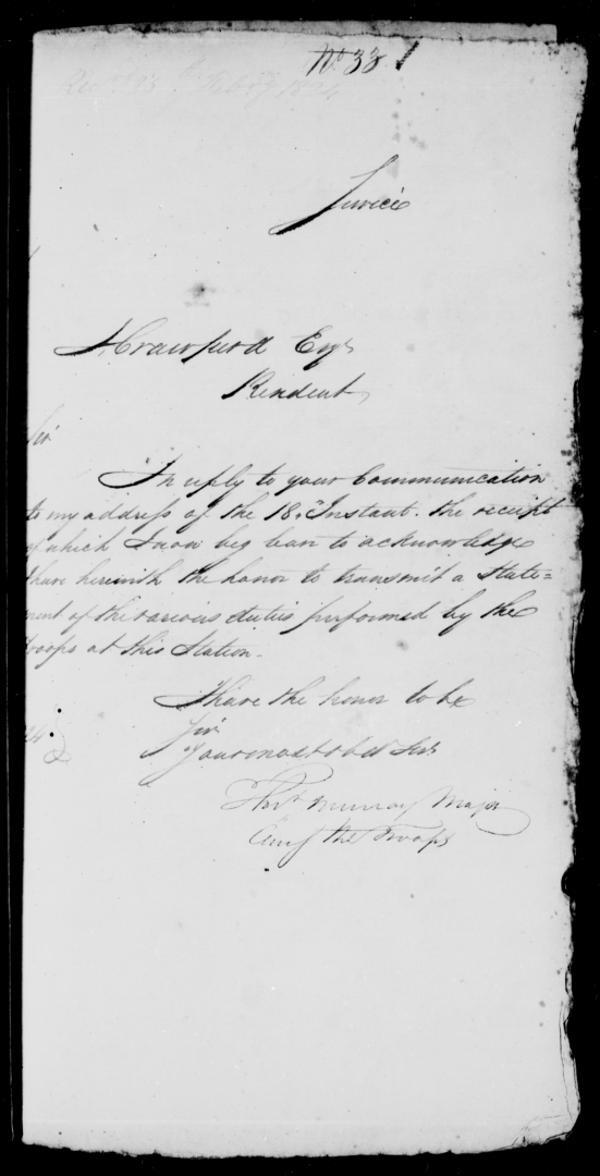 No 33
Recd 23 Feby 1824
Service
J Crawfurd Esqr
Resident
Sir
In reply to your Communication
to my address of the 18th Instant. the receipt
of which I now beg leave to acknowledge
I have herewith the honor to transmit a State=
ment of the various duties performed by the
Troops at this Station.
I have the honor to be
Sir
24
Your most obdt Servt
Murray Major
Comg the Troops